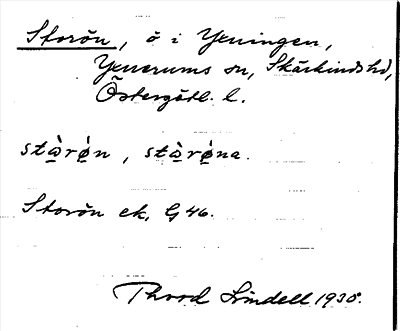 Storön, ö i Yxningen,
Yxnerums sn, Skärkinds hd,
Östergötl. l.
stɷ̀rǿn, stɷ̀rǿna.
Storön ek. G 46.
Thord Lindell 1938.